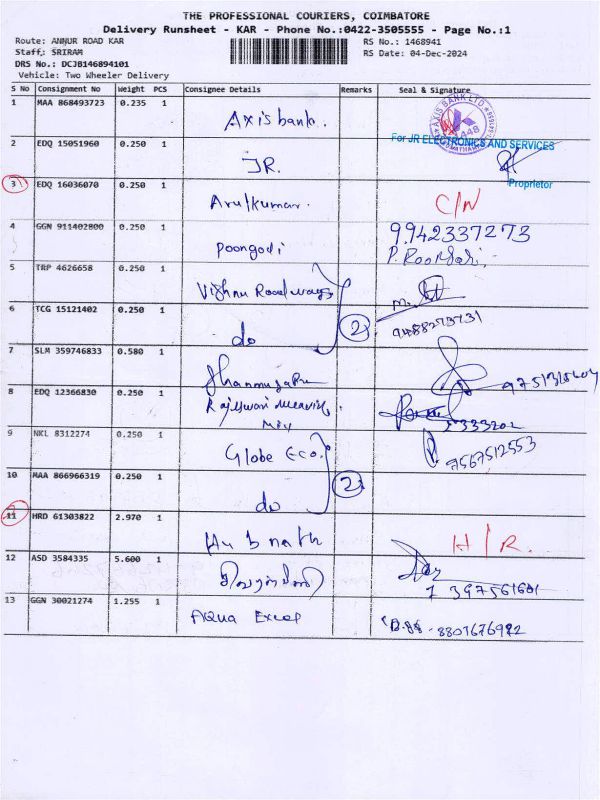 THE PROFESSIONAL COURIERS, COIMBATORE
Delivery Runsheet - KAR - Phone No.:0422-3505555 - Page No.:1
Route: ANNUR ROAD KAR
RS No.: 1468941
Staff.: SRIRAM
RS Date: 04-Dec-2024
DRS No.: DCJB146894101
Vehicle: Two Wheeler Delivery
S No Consignment No Weight PCS Consignee Details Remarks Seal & Signature
1 MAA 868493723 0.235 1 Axis bank. AXIS BANK LTD
2 EDQ 15051960 0.250 1 JR. For JR ELECTRONICS AND SERVICES
Proprietor
3 EDQ 16036070 0.250 1 Arulkumar. C/N
4 GGN 911402800 0.250 1 Poongodi 9942337273
5 TRP 4626658 0.250 1 Vishnu Roadways
6 TCG 15121402 0.250 1 do 2 9488273731
7 SLM 359746833 0.580 1
8 EDQ 12366830 0.250 1 Rajeswari
9 NKL 8312274 0.250 1 Globe Eco. 7567512553
10 MAA 866966319 0.250 1 do 2
11 HRD 61303822 2.970 1 H/R.
12 ASD 3584335 5.600 1 7397561601
13 GGN 30021274 1.255 1 AQua Excel